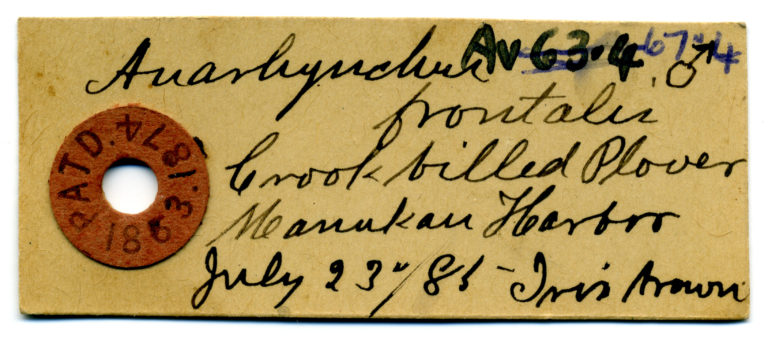 Av63.4 67.4 ♂
Anarhynchus
frontalis
Crook billed Plover
Manukau Harbor
July 23"/85 - Iris brown
PATD. 1874
1863